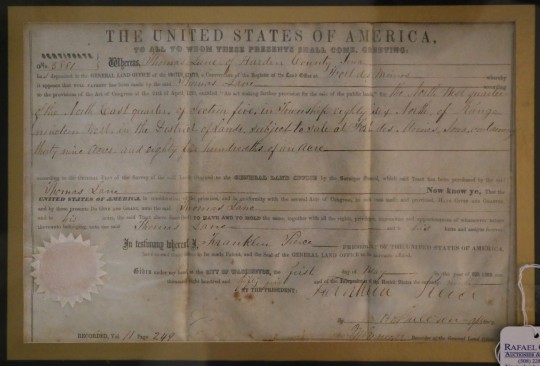 THE UNITED STATES OF AMERICA,
TO ALL TO WHOM THESE PRESENTS SHALL COME, GREETING:
Whereas Thomas Lane of Hardin County Iowa
deposited in the GENERAL LAND OFFICE of the United States, a Certificate of the Register of the Land Office at Fort des Moines whereby
it appears that full payment has been made by the said Thomas Lane according
to the provisions of the Act of Congress of the 24th of April, 1820, entitled "An act making further provision for the sale of the public lands," for the North West quarter
of the North East quarter, of Section five, in Township eighty six North, of Range
nineteen West, in the District of lands subject to sale at Fort des Moines, Iowa, containing
thirty nine Acres, and eighty five hundredths of an Acre
according to the Official Plat of the Survey of the said Lands, returned to the GENERAL LAND OFFICE by the Surveyor General, which said tract has been purchased by the said
Thomas Lane Now know ye, That the
UNITED STATES OF AMERICA, in consideration of the premises, and in conformity with the several Acts of Congress, in such case made and provided, HAVE GIVEN AND GRANTED,
and by these presents DO GIVE AND GRANT, unto the said Thomas Lane
and to his heirs, the said Tract above described: TO HAVE AND TO HOLD the same, together with all the rights, privileges, immunities, and appurtenances of whatsoever nature,
thereunto belonging, unto the said Thomas Lane and to his heirs and assigns forever.
In testimony whereof, I, Franklin Pierce PRESIDENT OF THE UNITED STATES OF AMERICA,
have caused these Letters to be made Patent, and the Seal of the GENERAL LAND OFFICE to be hereunto affixed.
Given under my hand, at the CITY OF WASHINGTON, the first day of in the year of our Lord one
thousand eight hundred and fifty and of the Independence of the United States the
BY THE PRESIDENT: Franklin Pierce
By
Recorder of the General Land Office.
RECORDED, Vol. 11 Page 249
RAFAEL
AUCTIONEER
(508)